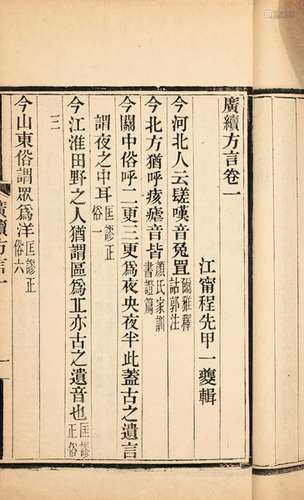 廣續方言卷一
江甯程先甲一夔輯
今河北人云𨲠嘆音兔罝爾雅釋詁郭注
今北方猶呼痎瘧音皆顏氏家訓書證篇
今關中俗呼二更三更爲夜央夜半此蓋古之遺言
謂夜之中耳匡謬正俗一
今江淮田野之人猶謂區爲丘亦古之遺音也匡謬正俗
三
今山東俗謂眾爲洋匡謬正俗六
廣續方言一